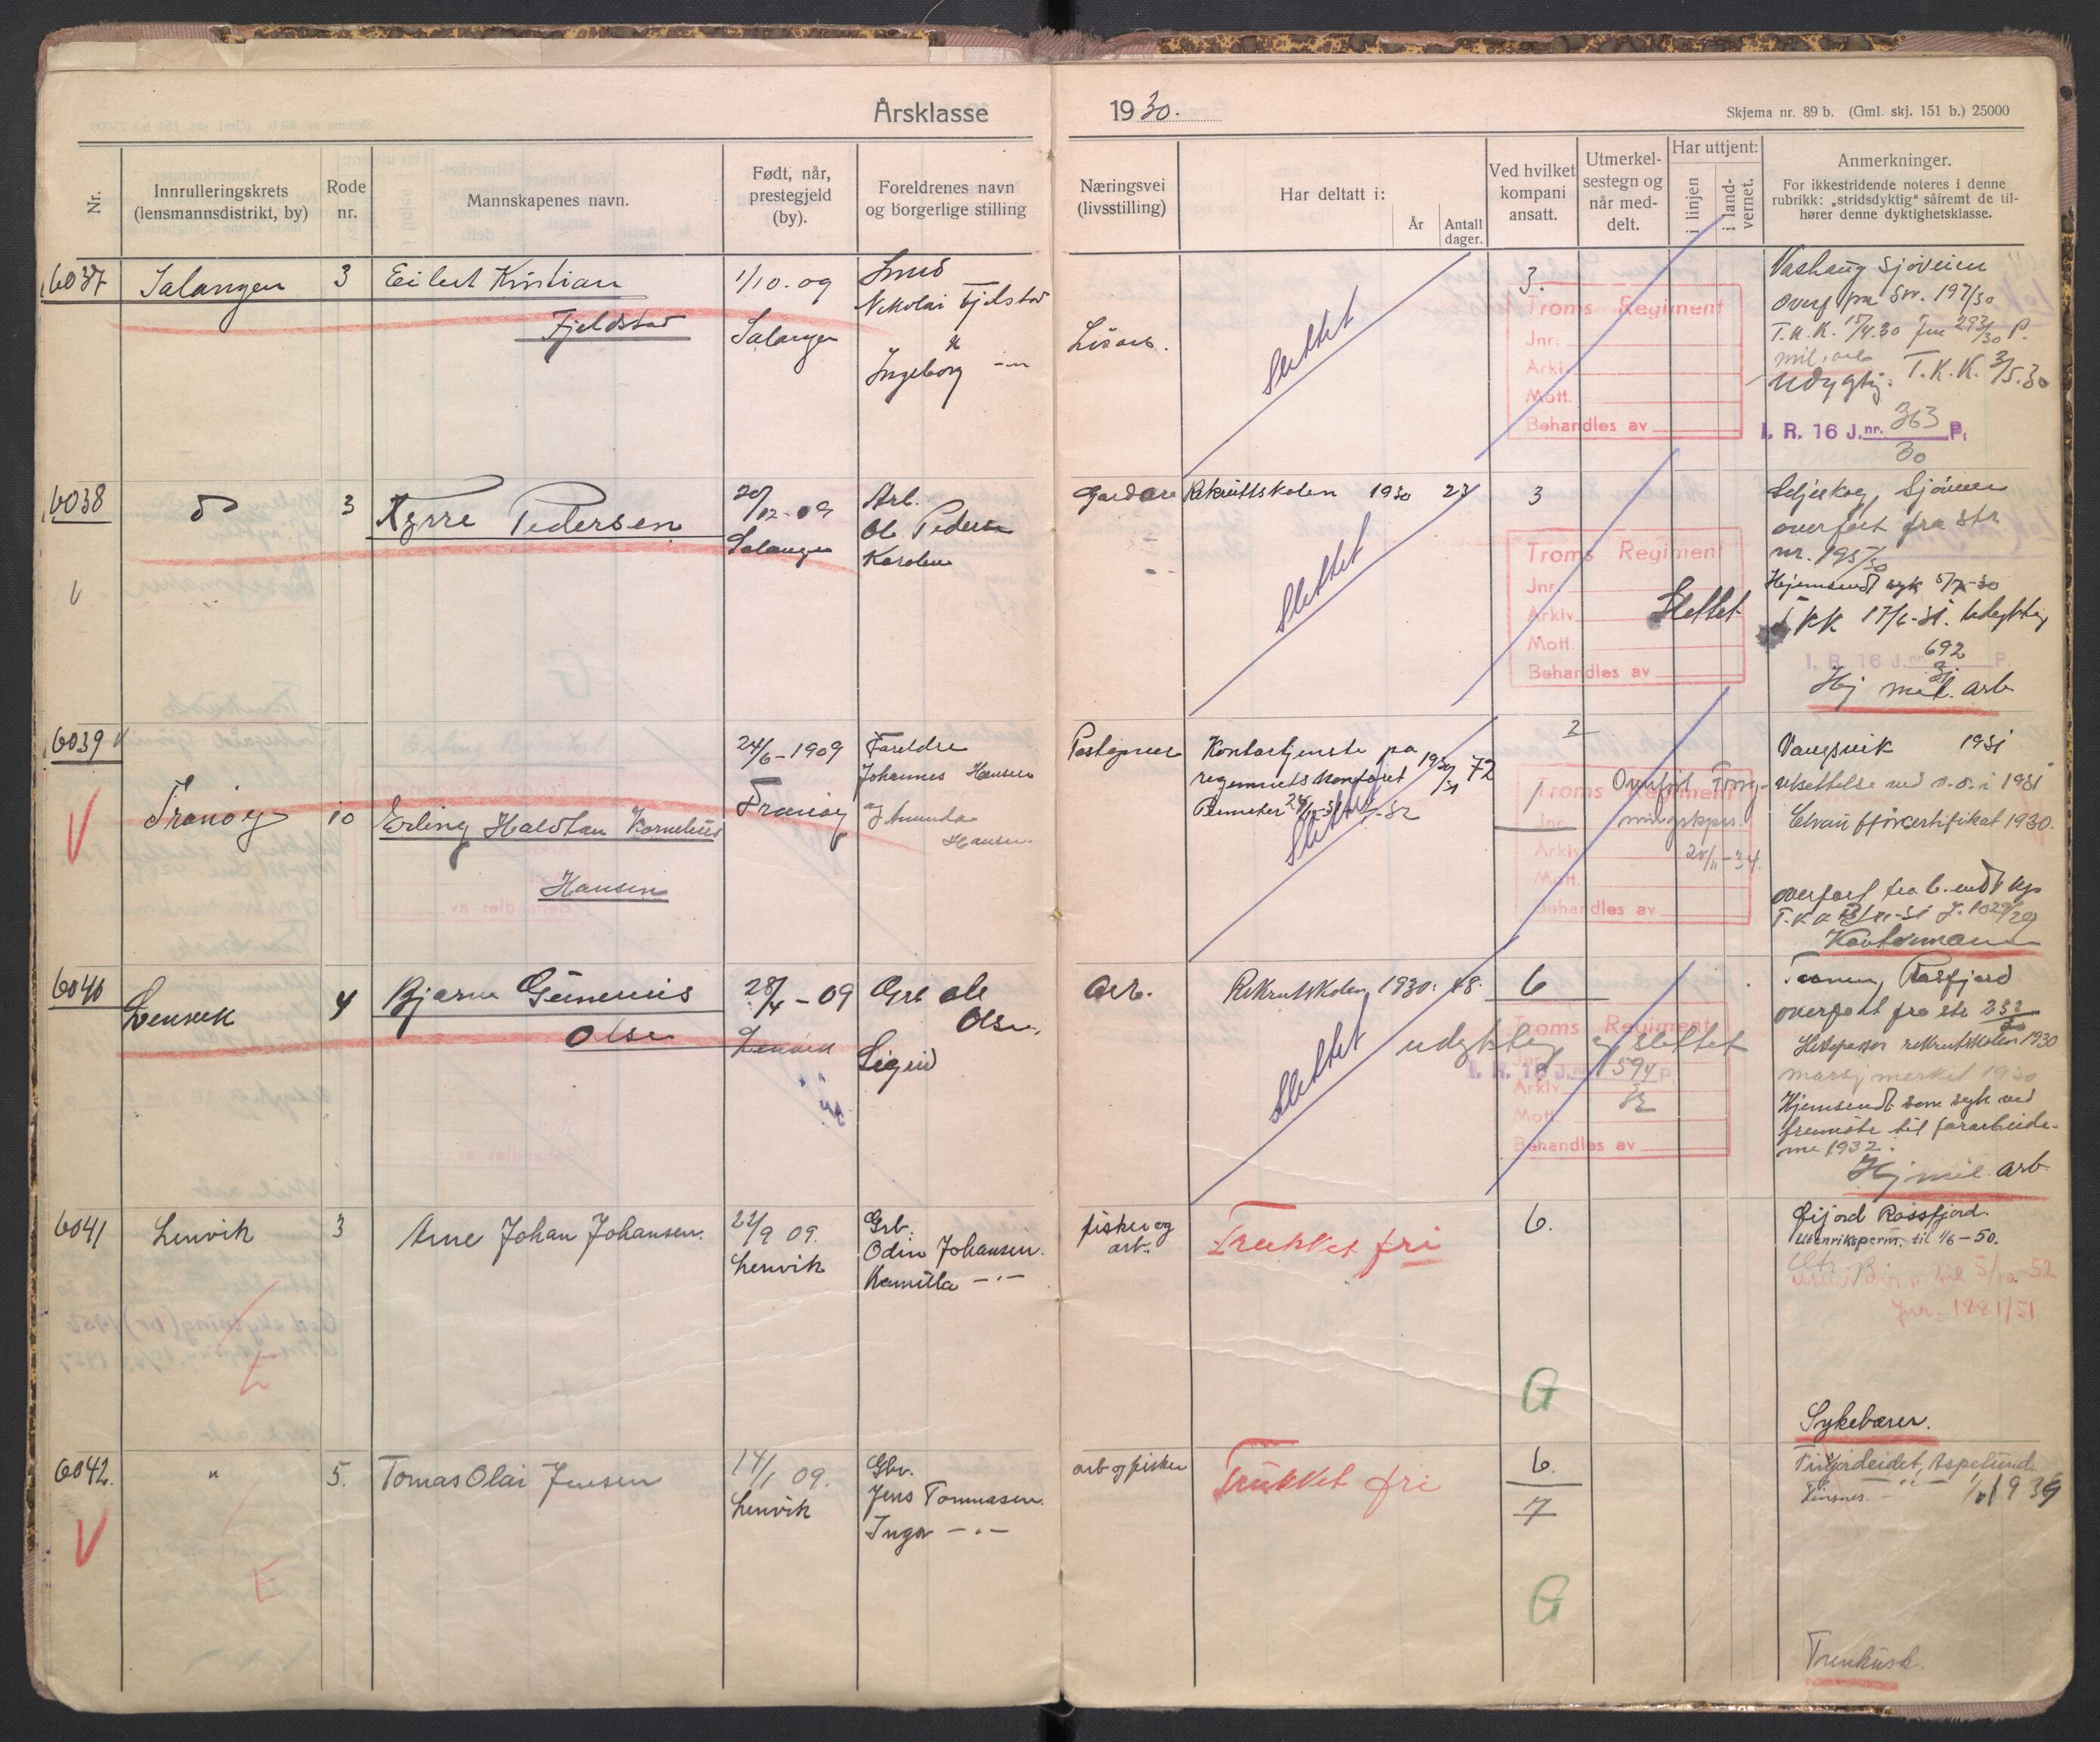 Årsklasse 1930.
Skjema nr. 89 b. (Gml. skj. 151 b.) 25000
Nr.
Innrulleringskrets
(lensmannsdistrikt, by)
Rode
nr.
Mannskapenes navn.
Født, når,
prestegjeld
(by).
Foreldrenes navn
og borgerlige stilling
Næringsvei
(livsstilling)
Har deltatt i:
År
Antall
dager.
Ved hvilket
kompani
ansatt.
Utmerkel-
sestegn og
når med-
delt.
Har uttjent:
i linjen
i land-
vernet.
Anmerkninger.
For ikkestridende noteres i denne
rubrikk: „stridsdyktig“ såfremt de til-
hører denne dyktighetsklasse.
6037
Salangen
3
Eilert Kristian
Fjeldstad
1/10. 09
Salangen
Smed
Nikolai Fjelstad
Ingeborg -"-
Slettet
3.
Troms Regiment
Jnr.
Arkiv
Mott.
Behandles av
Vashaug Sjøveien
overf fra str. 197/30
T.K.K. 15/4.30 Jnr 293/30 P.
mil. arb
Udygtig. T.K.K. 3/5.30
I. R. 16 J.nr. 363 P.
30
6038
do
3
Kyrre Pedersen
20/12-09
Salangen
Arb.
Ole Pedersen
Karoline
Rekruttskolen 1930 24
Slettet
3
Troms Regiment
Jnr.
Arkiv
Mott.
Behandles av
Slettet
Seljeskog, Sjøveien
overført fra str
nr. 195/30
Hjemsendt syk 5/7-30
T KK 17/6-31. Udygtig
I. R. 16 J.nr. 692 P.
31
Hj mil. arb
6039
V
Tranøy
10
Erling Halvdan Kornelius
Hansen
24/6-1909
Tranøy
Foreldre
Johannes Hansen
og Amunda
Hansen
Kontortjeneste på
regimentskontoret 1930/31 72
Slettet
2
1
Troms Regiment
Jnr.
Arkiv
Mott.
Behandles av
Overført Træng-
ningskpn.
Vangsvik 1931
utsettelse med r.ø. i 1931
overført fra 6. kp
Kontormann
6040
Lenvik
4
Bjarne Gunerius
Olsen
28/4-09
Lenvik
Grb Ole
Olsen,
Sigrid
Arb.
Rekrutskolen 1930: 48.
Slettet
6
udyktig og slettet
Troms Regiment
I. R. 16 J.nr. 594 P
32
Jnr.
Arkiv
Mott.
Behandles av
overført fra str 232/30
rekrutskolen 1930
marsjmerket 1930
Hjemsendt som syk ved
fremmøte til forarbeide-
ne 1932.
Hj mil. arb
6041
Lenvik
3
Arne Johan Johansen.
22/9 09.
Lenvik
Grb.
Odin Johansen.
Kamilla -"-
fisker og
arb.
Trukket fri
6.
G
Gijord Rossfjord.
Utenriksperm. til 1/6-50.
til 5/10-52
Jnr. 1221/51
Sykebærer.
E
6042.
"
5.
Tomas Olai Jensen
14/1 09.
Lenvik
Gbr.
Jens Tommasen.
Inga -"-
arb og fisker
Trukket fri
6.
7
G
V
E
Finfjordeidet, Aspelund
Finsnes. -"- 1/1 1939
Trenkusk.